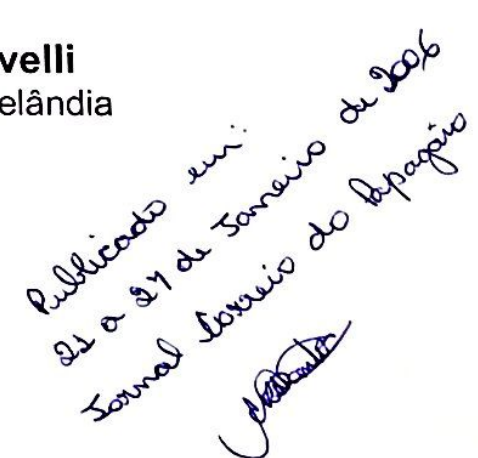 velli
elândia
Publicado em:
21 a 27 de Janeiro de 2006
Jornal Correio do Papagaio